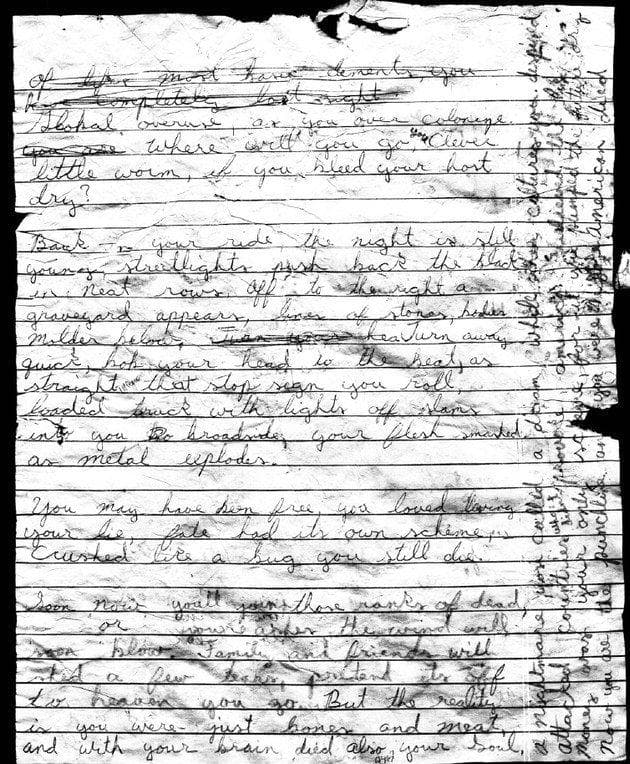 most have dements, you
completely lost sight
Global overuse, as you over colonize.
you are Where will you go, you clever
little worm, if you bleed your host
dry?
Back in your ride, the night is still
young, streetlights push back the black
in neat rows. Off to the right a
graveyard appears, lines of stones, bodies
molder below. Turn away
quick, bob your head to the beat, as
straight through that stop sign you roll,
loaded truck with lights off slams
into you broadside, your flesh smashed
as metal explodes.
You may have been free, you loved living
your lie, fate had its own scheme,
crushed like a bug you still die.
Soon now, you'll join those ranks of dead,
or your ashes the wind will
soon blow. Family and friends will
shed a few tears, pretend its off
to heaven you go. But the reality
is you were just bones and meat,
and with your brain died also your soul.
a nightmare you called a dream, while other cultures you despised
attacked countries
money was your only
Now you are the punchline, american died